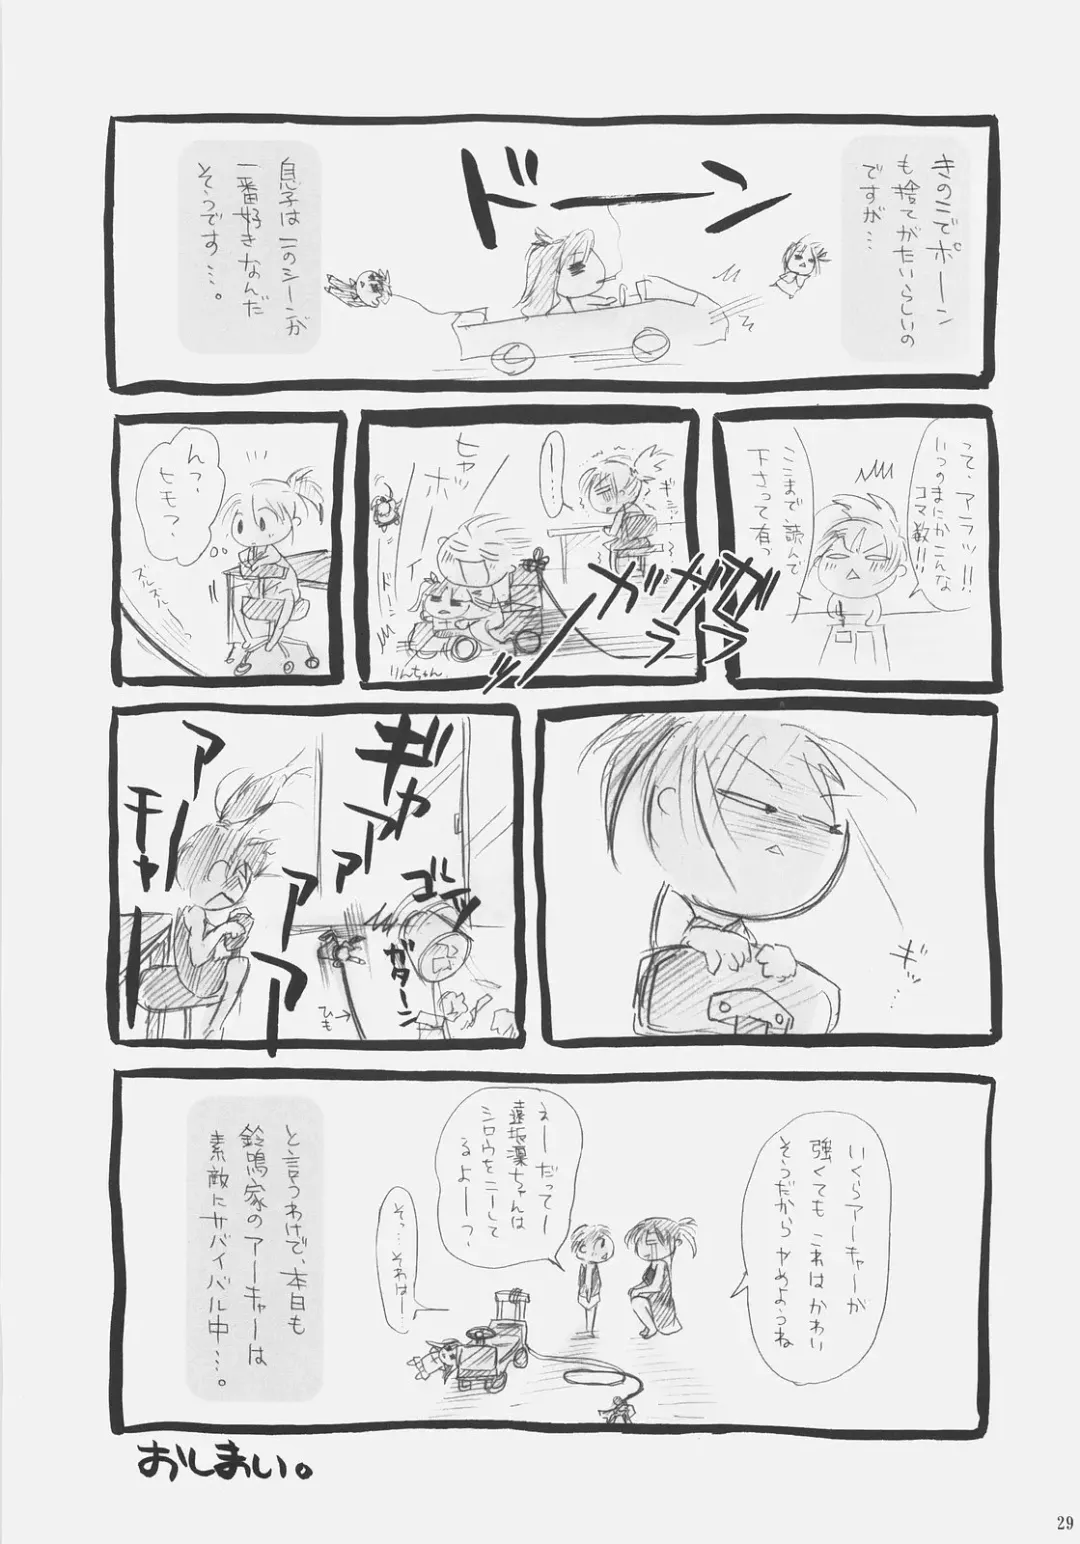 きのこでポーン
も捨てがたいらしいの
ですが…
ドーーン
息子はこのシーンが
一番好きなんだ
そうです…。
って、アラッ!!
いつのまにかこんな
コマ数!!
ここまで読んで
下さって有っ
ガガガ
ララ
ギシ…
…
ヒャッ
ホーイ
ドー!
りんちゃん
んっ、
ヒモ?
ズルズル…
ギッ
…
ギャアア
アアア
アーー
モャー
ゴレイッ
ガターン
ひも→
いくらアーチャーが
強くてもこれはかわい
そうだからやめようね
えーだってー
遠坂凛ちゃんは
シロウをこーして
るよーっ
そっ…それはー…
と言うわけで、本日も
鈴鳴家のアーチャーは
素敵にサバイバル中…。
おしまい。
29